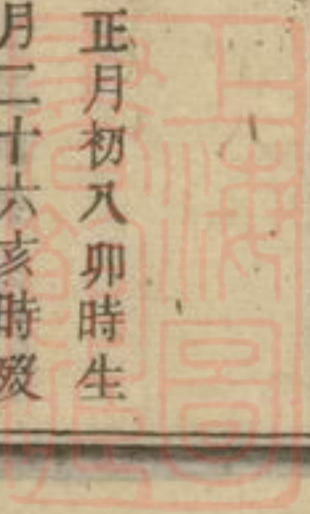 正月初八卯時生
月二十六亥時歿
上海圖